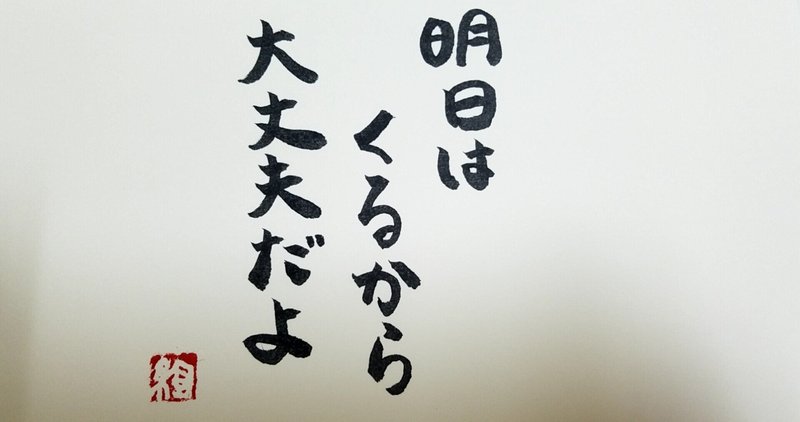 明日は
くるから
大丈夫だよ